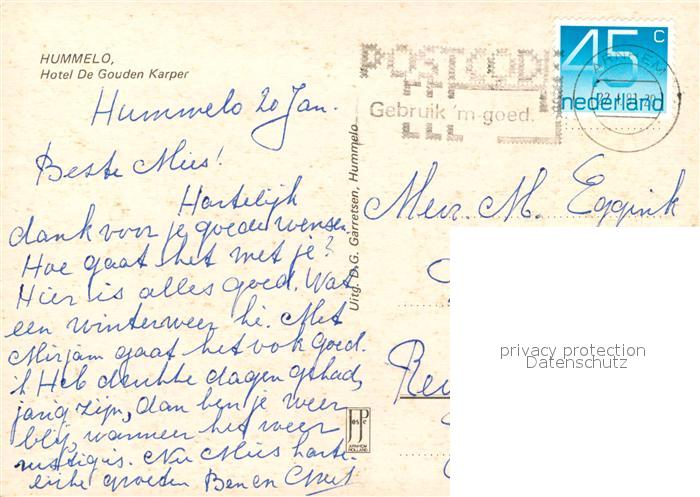 HUMMELO,
Hotel De Gouden Karper
Hummelo 20 Jan.
Beste Mies!
Hartelijk
dank voor je goede wensen.
Hoe gaat het met je?
Hier is alles goed. Wat
een winterweer he. Met
Mirjam gaat het ook goed.
ik Heb drukke dagen gehad,
jarig zijn, dan ben je weer
blij, wanneer het weer
rustig is. Nu Mies harte-
lijke groeten Ben en
Uitg. D.G. Garretsen, Hummelo
JosPe
ARNHEM
HOLLAND
POSTCODE
Gebruik 'm goed.
45 c
nederland
ARNHEM
Mevr. M. Eggink
privacy protection
Datenschutz